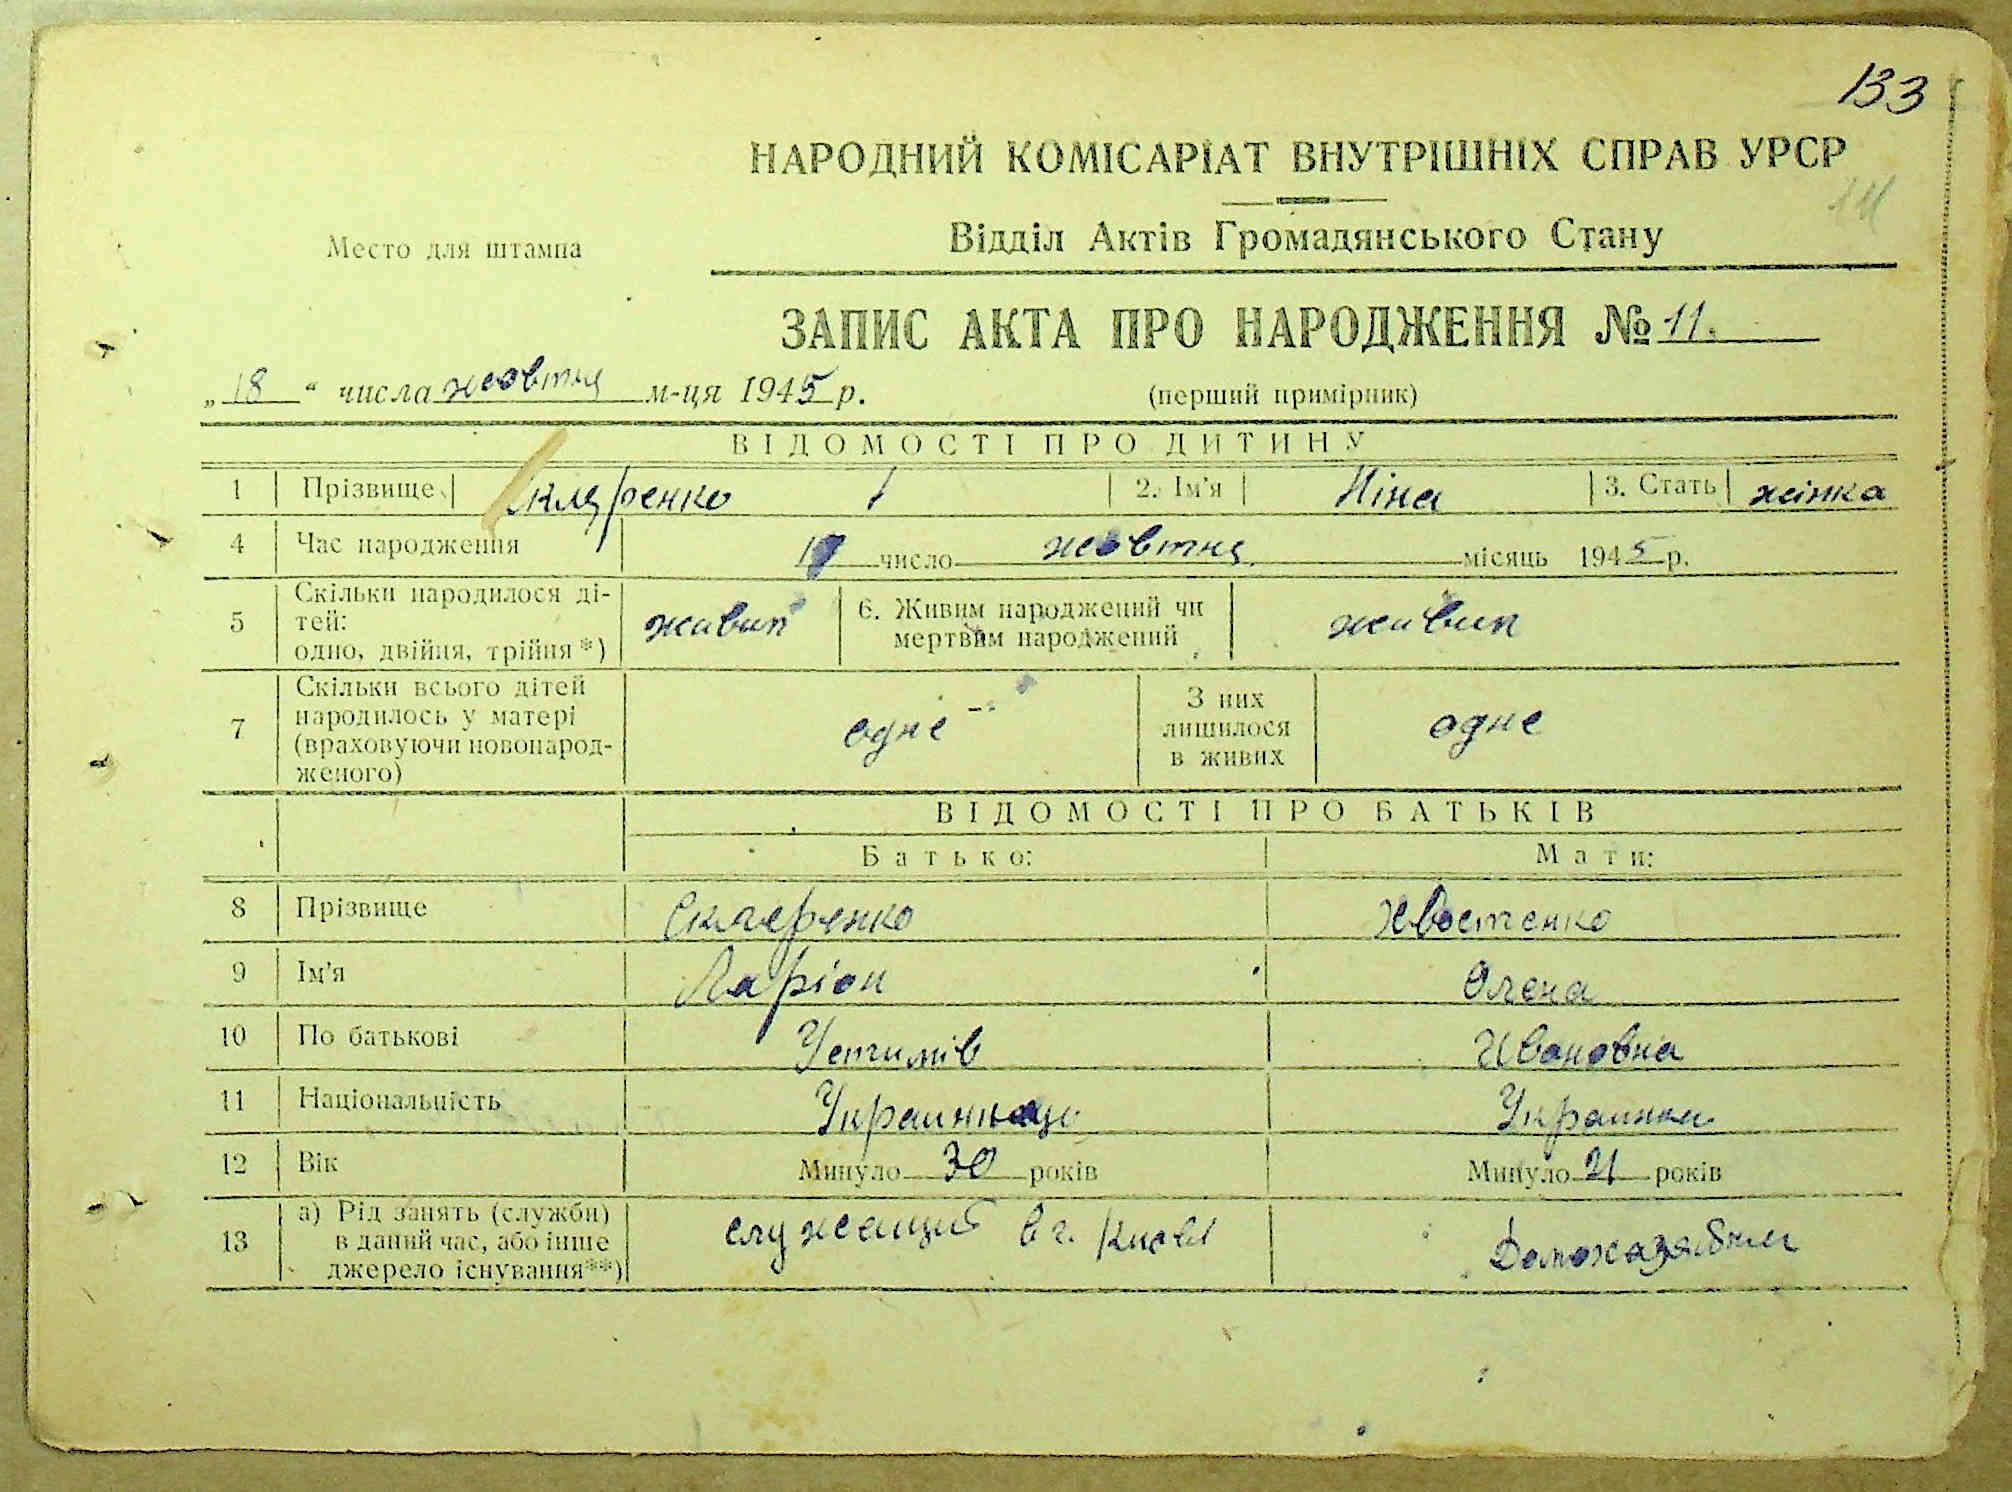 133
НАРОДНИЙ КОМІСАРІАТ ВНУТРІШНІХ СПРАВ УРСР
Место для штампа
Відділ Актів Громадянського Стану
ЗАПИС АКТА ПРО НАРОДЖЕННЯ № 11.
„ 18 “ числа жовтня м-ця 1945 р. (перший примірник)
ВІДОМОСТІ ПРО ДИТИНУ
1 Прізвище Скляренко 2. Ім'я Ніна 3. Стать жінка
4 Час народження число жовтня місяць 1945 р.
5 Скільки народилося ді-
тей:
одно, двійня, трійня *) живих 6. Живим народжений чи
мертвим народжений живих
7 Скільки всього дітей
народилось у матері
(враховуючи новонарод-
женого) одне З них
лишилося
в живих одне
ВІДОМОСТІ ПРО БАТЬКІВ
Батько: Мати:
8 Прізвище Скляренко Хвостенко
9 Ім'я Ларіон Олена
10 По батькові Устимів Ивановна
11 Національність Украинка
12 Вік Минуло 30 років Минуло 21 років
13 а) Рід занять (служби)
в даний час, або інше
джерело існування**) служащий в г. Києві